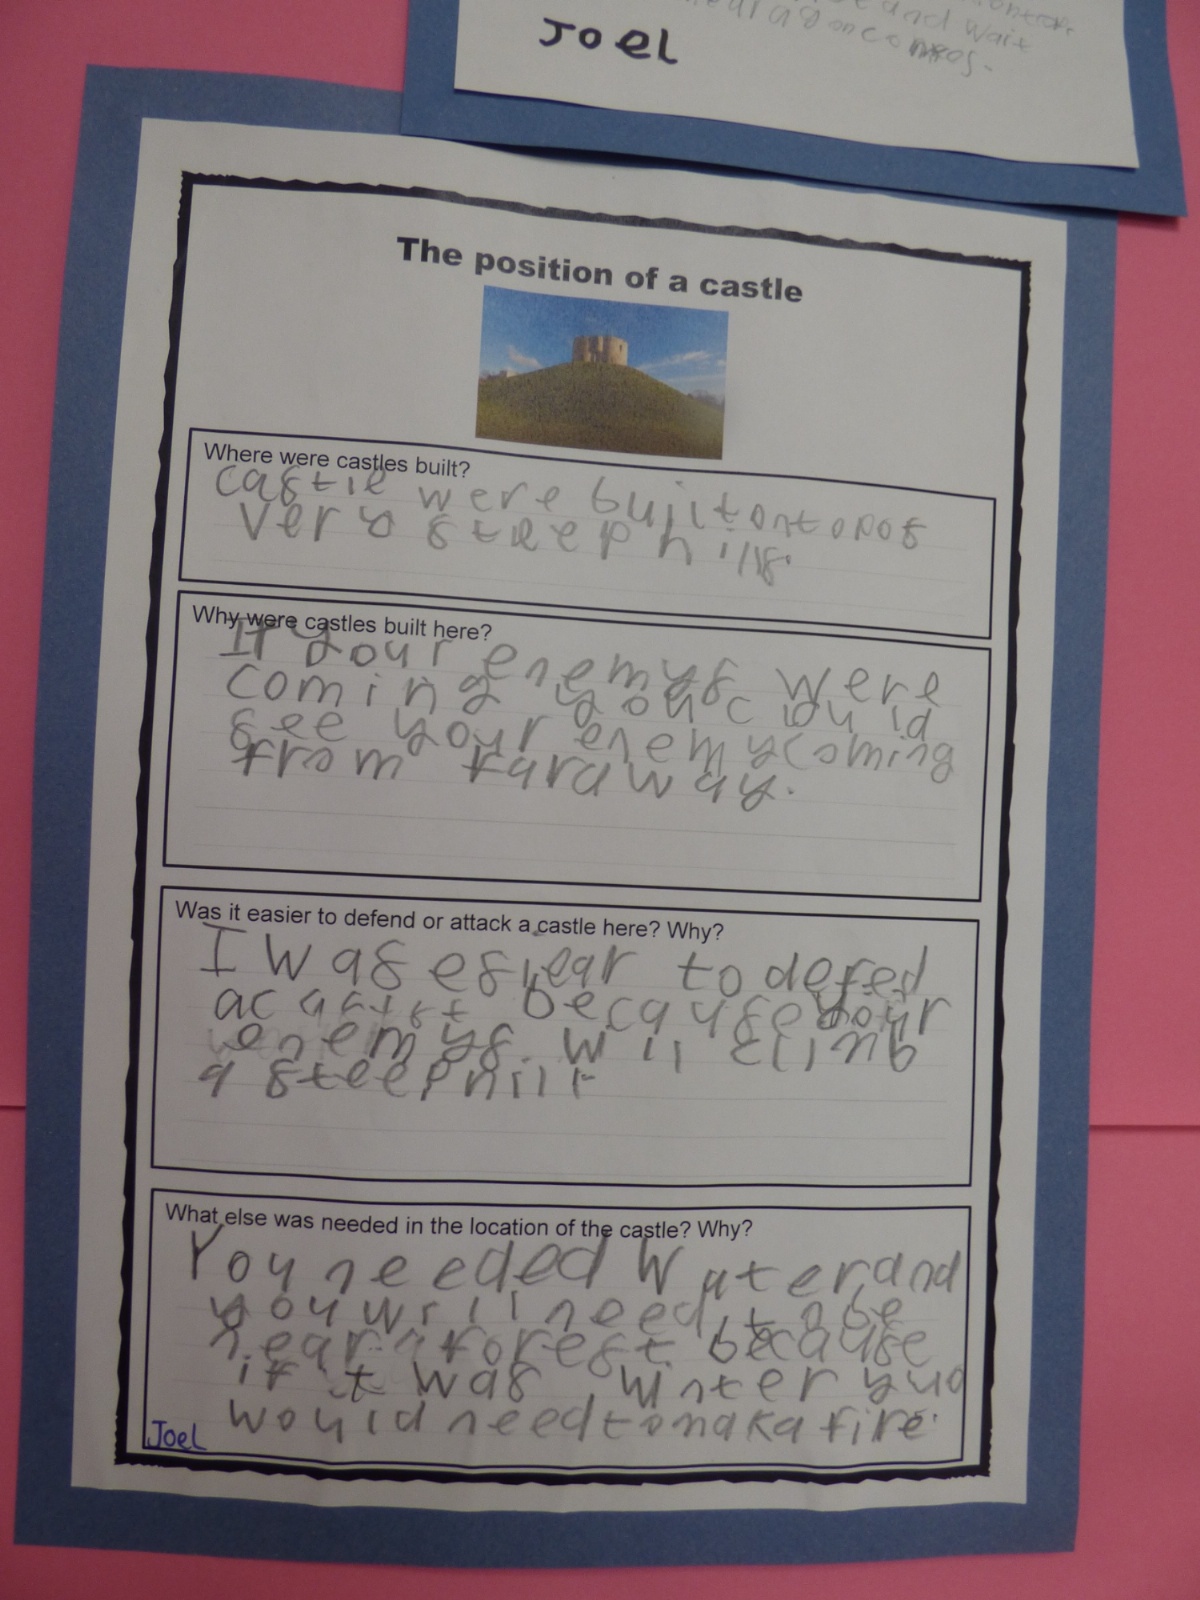 and wait
JOEL
The position of a castle
Where were castles built?
castle were built on top of
very steep hills.
Why were castles built here?
If your enemys were
coming you could
see your enemy coming
from faraway.
Was it easier to defend or attack a castle here? Why?
I was esiear to defed
because your
enemys. will climb
a steep hill
What else was needed in the location of the castle? Why?
You needed water and
you will need to be
near a forest because
if it was winter you
would need to maka fire.
Joel